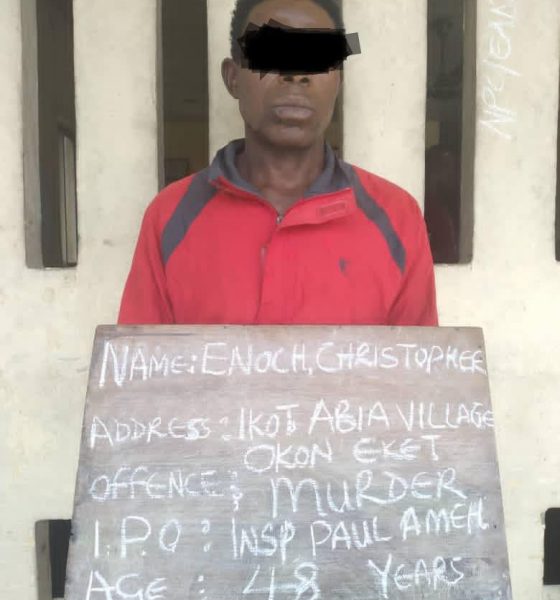 NAME: ENOCH, CHRISTOPHER
ADDRESS: IKOT ABIA VILLAGE
OKON EKET
OFFENCE: MURDER
I.P.O: INSP PAUL AMEH
AGE: 48 YEARS